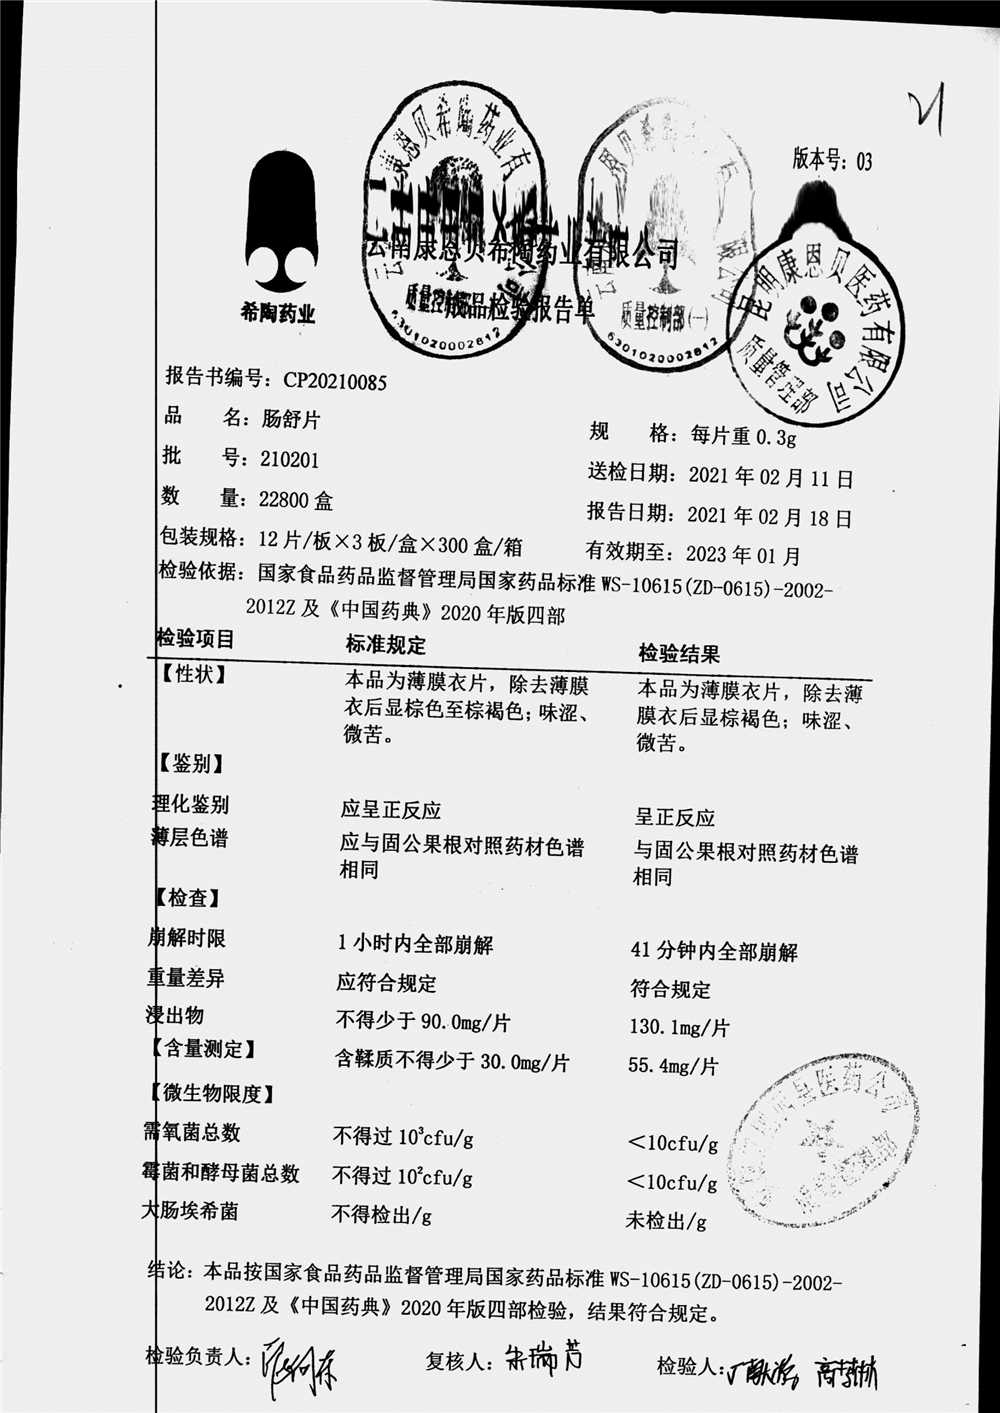 版本号：03
希陶药业
云南康恩贝希陶药业有限公司
成品检验报告单
云南康恩贝希陶药业有限公司
质量控制部
6301020002812
质量控制部(一)
6301020002812
昆明康恩贝医药有限公司
质量管理部
报告书编号：CP20210085
品 名：肠舒片
规 格：每片重 0.3g
批 号：210201
送检日期：2021 年 02 月 11 日
数 量：22800 盒
报告日期：2021 年 02 月 18 日
包装规格：12 片/板×3 板/盒×300 盒/箱
有效期至：2023 年 01 月
检验依据：国家食品药品监督管理局国家药品标准 WS-10615(ZD-0615)-2002-
2012Z 及《中国药典》2020 年版四部
检验项目 标准规定 检验结果
【性状】 本品为薄膜衣片，除去薄膜 本品为薄膜衣片，除去薄
衣后显棕色至棕褐色；味涩、 膜衣后显棕褐色；味涩、
微苦。 微苦。
【鉴别】
理化鉴别 应呈正反应 呈正反应
薄层色谱 应与固公果根对照药材色谱 与固公果根对照药材色谱
相同 相同
【检查】
崩解时限 1 小时内全部崩解 41 分钟内全部崩解
重量差异 应符合规定 符合规定
浸出物 不得少于 90.0mg/片 130.1mg/片
【含量测定】 含鞣质不得少于 30.0mg/片 55.4mg/片
【微生物限度】
需氧菌总数 不得过 10³cfu/g ＜10cfu/g
霉菌和酵母菌总数 不得过 10²cfu/g ＜10cfu/g
大肠埃希菌 不得检出/g 未检出/g
结论：本品按国家食品药品监督管理局国家药品标准 WS-10615(ZD-0615)-2002-
2012Z 及《中国药典》2020 年版四部检验，结果符合规定。
检验负责人： 复核人：朱瑞芳 检验人：